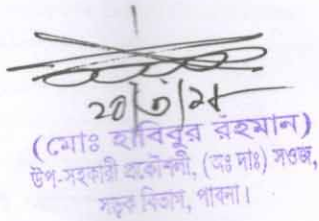 ২০|৩|২৮
(মোঃ হাবিবুর রহমান)
উপ-সহকারী প্রকৌশলী, (অঃ দাঃ) সওজ,
সড়ক বিভাগ, পাবনা।